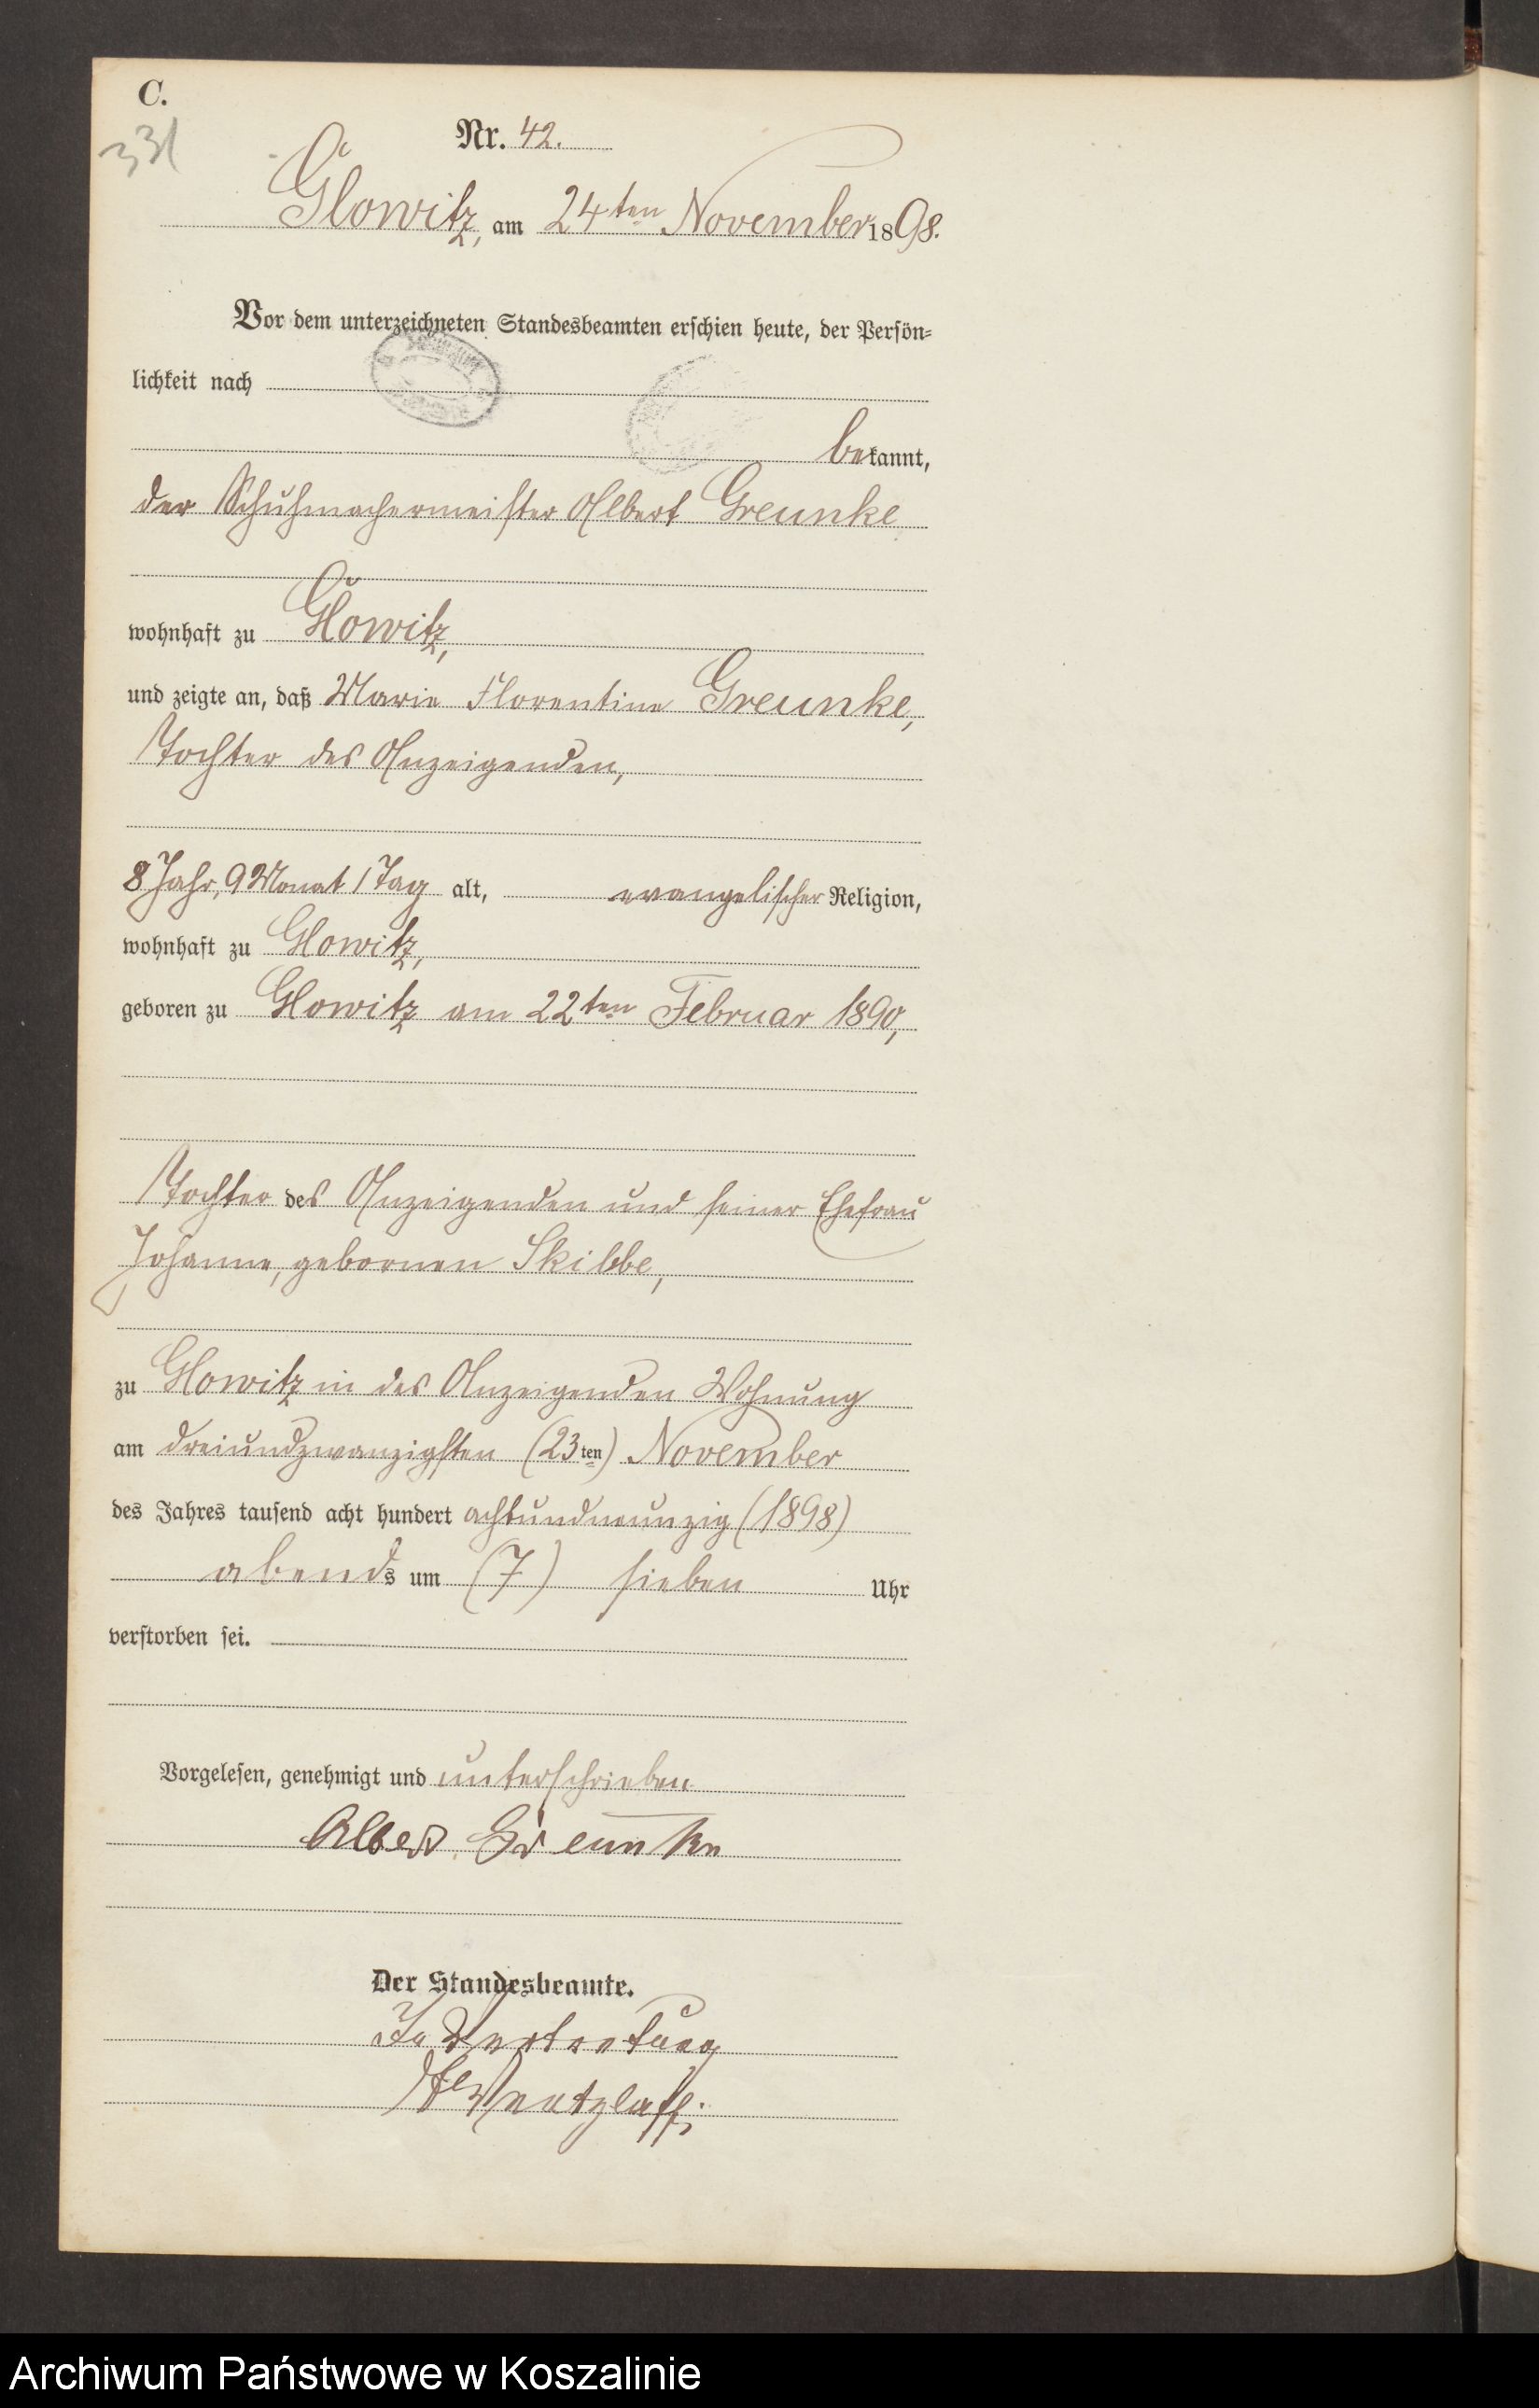 C.
331
Nr. 42.
Glowitz, am 24ten November 1898.
Vor dem unterzeichneten Standesbeamten erschien heute, der Persön=
lichkeit nach
bekannt,
der Schuhmachermeister Albert Greunke
wohnhaft zu Glowitz,
und zeigte an, daß Marie Florentine Greunke,
Tochter des Anzeigenden,
8 Jahr, 9 Monat 1 Tag alt, evangelischer Religion,
wohnhaft zu Glowitz,
geboren zu Glowitz am 22ten Februar 1890,
Tochter des Anzeigenden und seiner Ehefrau
Johanne, gebornen Skibbe,
zu Glowitz in des Anzeigenden Wohnung
am dreiundzwanzigsten (23ten) November
des Jahres tausend acht hundert achtundneunzig (1898)
abends um (7) sieben Uhr
verstorben sei.
Vorgelesen, genehmigt und unterschrieben
Albert Greunke
Der Standesbeamte.
In Vertretung
Wentzlaff.
Archiwum Państwowe w Koszalinie